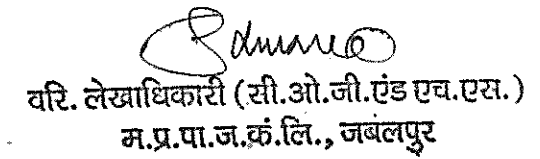 वरि. लेखाधिकारी (सी.ओ.जी.एंड एच.एस.)
म.प्र.पा.ज.कं.लि., जबलपुर